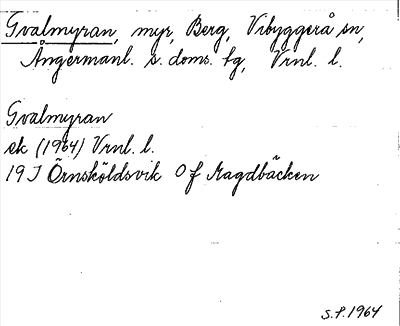 Gvalmyran, myr, Berg, Vibyggerå sn,
Ångermanl. s. doms. tg, Vrnl. l.
Gvalmyran
ek (1964) Vrnl. l.
19 I Örnsköldsvik 0 f Magdbäcken
S.F. 1964